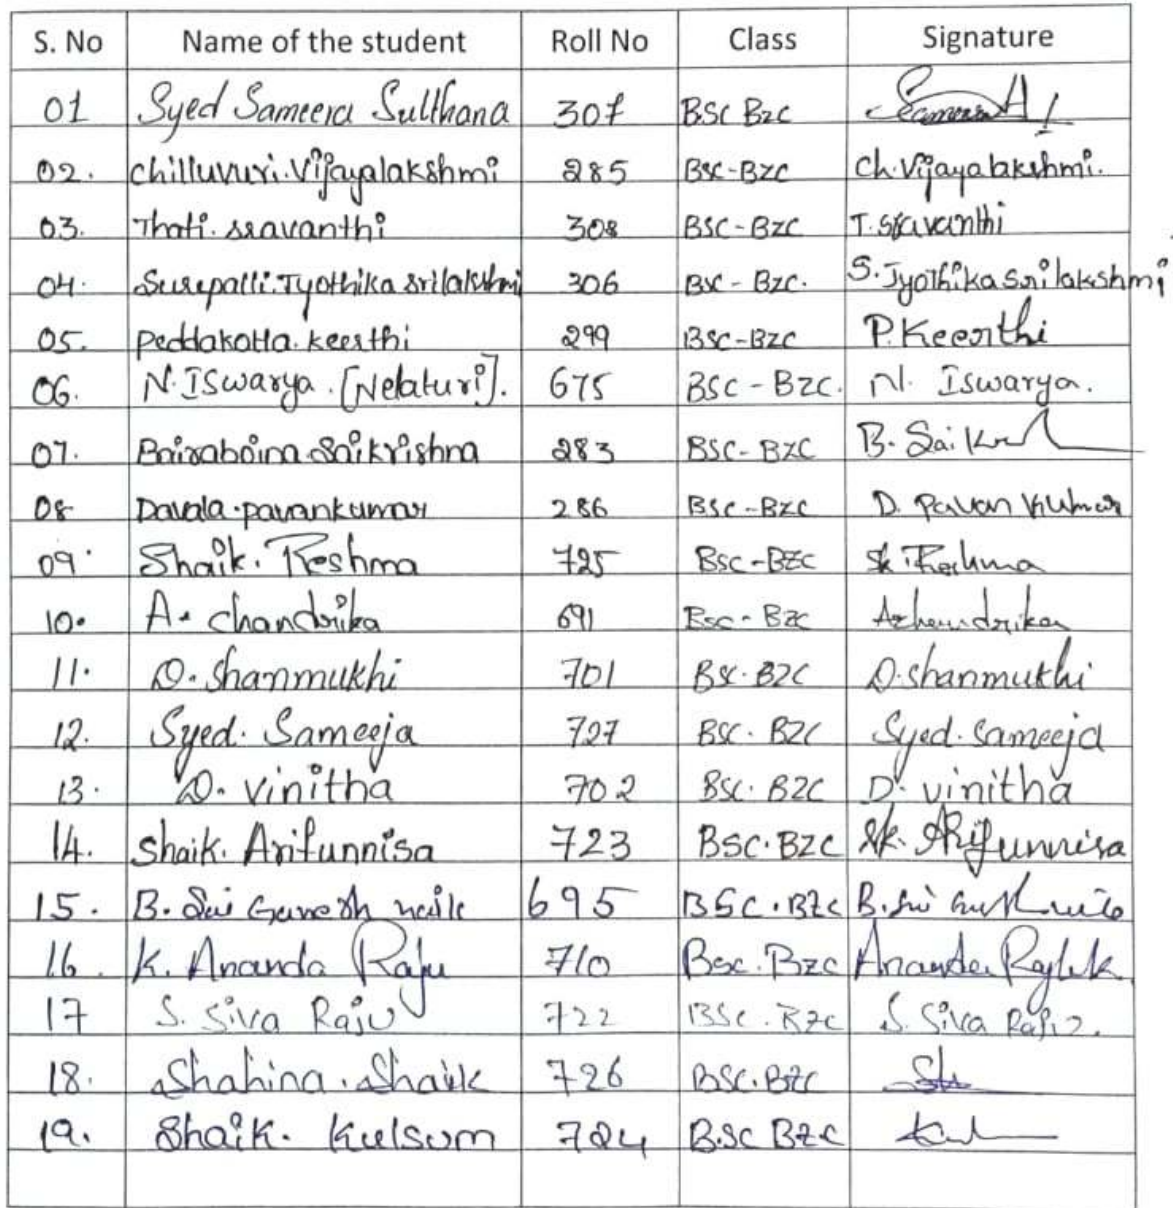 S. No Name of the student Roll No Class Signature
01 Syed Sameera Sulthana 307 BSC BZC Sameera
02. chilluvuri.Vijayalakshmi 285 BSC-BZC Ch.Vijayalakshmi.
03. Thati. sravanthi 308 BSC-BZC T. sravanthi
04. Surepalli.Jyothika srilakshmi 306 BSC-BZC. S. Jyothika Srilakshmi
05. peddakotla. keerthi 299 BSC-BZC P. Keerthi
06. N. ISwarya. [Nelaturi]. 675 BSC-BZC. N. Iswarya.
07. Bairaboina Saikrishna 283 BSC-BZC B. Sai
08 Davala.pavankumar 286 BSC-BZC D. Pavan Kumar
09. Shaik. Reshma 725 BSC-BZC Sk. Reshma
10. A. chandrika 691 BSC-BZC A.chandrika
11. D. shanmukhi 701 BSC.BZC D.shanmukhi
12. Syed. Sameeja 727 BSC.BZC Syed. sameeja
13. D. vinitha 702 BSC.BZC D. vinitha
14. shaik. Arifunnisa 723 BSC.BZC Sk. Arifunnisa
15. B. Sai Ganesh naik 695 BSC.BZC B. Sai
16. K. Ananda Raju 710 BSC.BZC Ananda Raju.k
17 S. Siva Raju 722 BSC.BZC S. Siva Raju.
18. Shahina. Shaik 726 BSC.BZC
19. Shaik. Kulsum 724 B.SC BZC